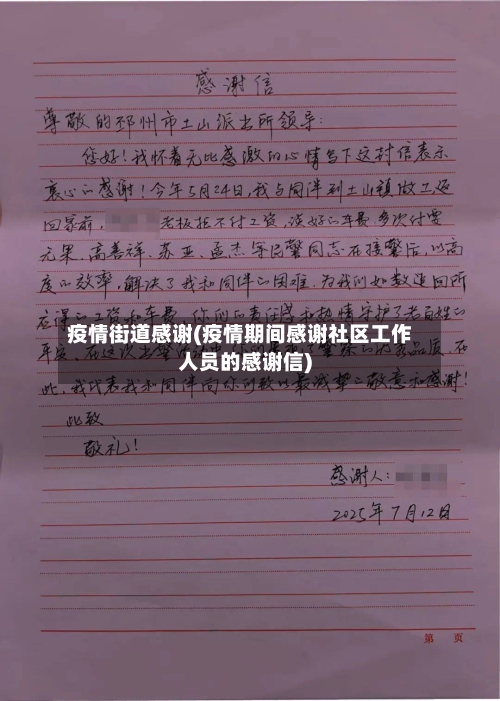 感谢信
尊敬的邳州市土山派出所领导:
您好!我怀着无比感激的心情写下这封信表示
衷心的感谢!今年5月24日,我与同伴到土山镇做工返
回家前, 老板拒不付工资,谈好的车费多次付要
无果,高善祥、苏亚、孟杰等民警同志在接警后,以高
度的效率,解决了我和同伴的困难,为我们如数追回所
应得的工资和车费,你们的责任感和热情守护了老百姓的
平安,在这次
疫情街道感谢(疫情期间感谢社区工作
人员的感谢信)
此,我代表我和同伴向你们致以最诚挚的敬意和感谢!
此致
敬礼!
感谢人:
2025年7月12日
第 页